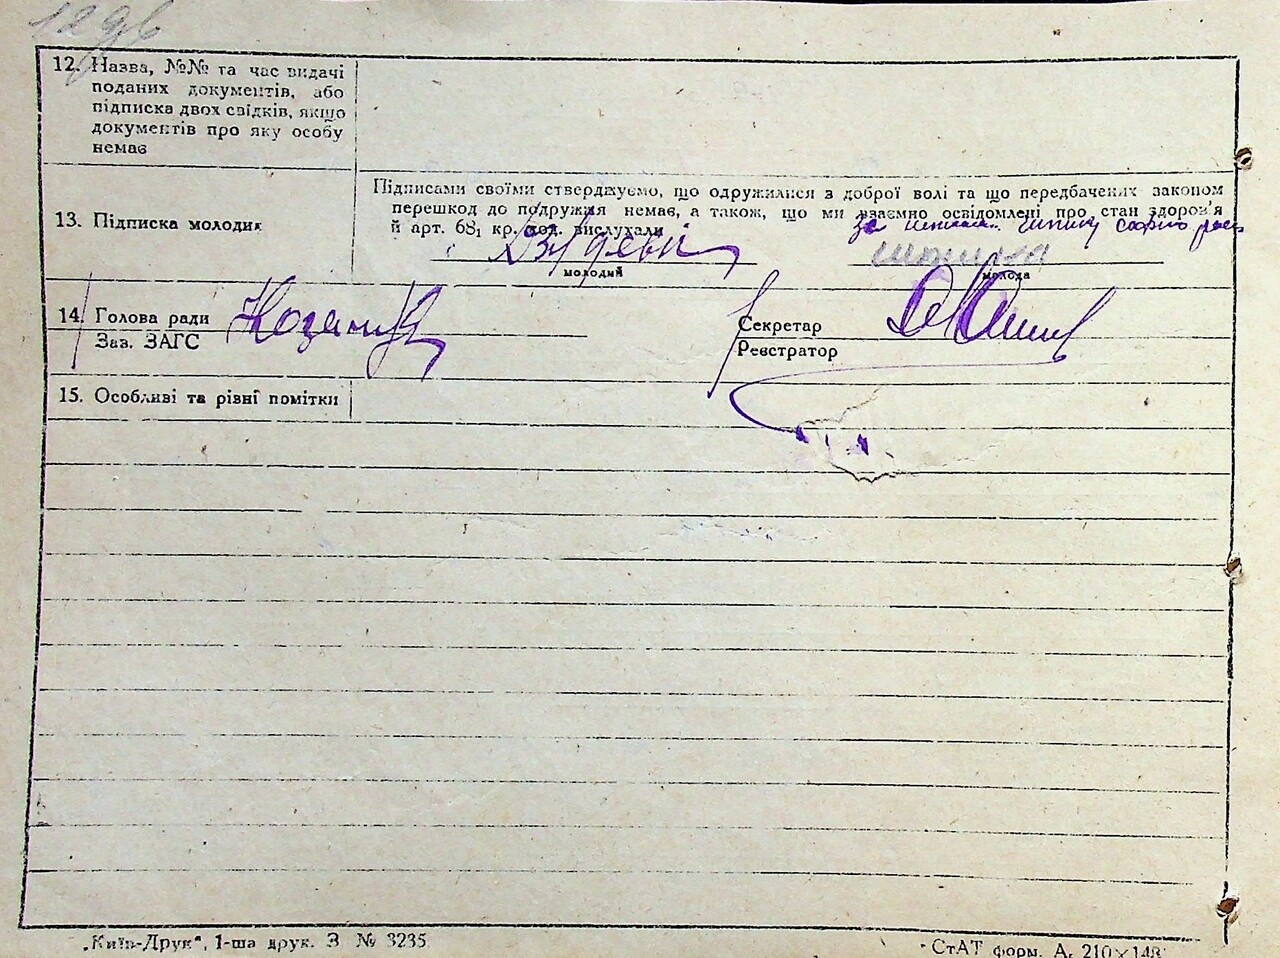 12. Назва, №№ та час видачі
поданих документів, або
підписка двох свідків, якщо
документів про яку особу
немає
Підписами своїми стверджуємо, що одружилися з доброї волі та що передбачених законом
перешкод до подружжя немає, а також, що ми взаємно освідомлені про стан здоров'я
й арт. 68₁ кр. код. вислухали
13. Підписка молодих
молодий
молода
14. Голова ради
Зав. ЗАГС
Секретар
Реєстратор
15. Особливі та різні помітки
„Київ-Друк", 1-ша друк. З № 3235
СтАТ форм. А₅ 210×148